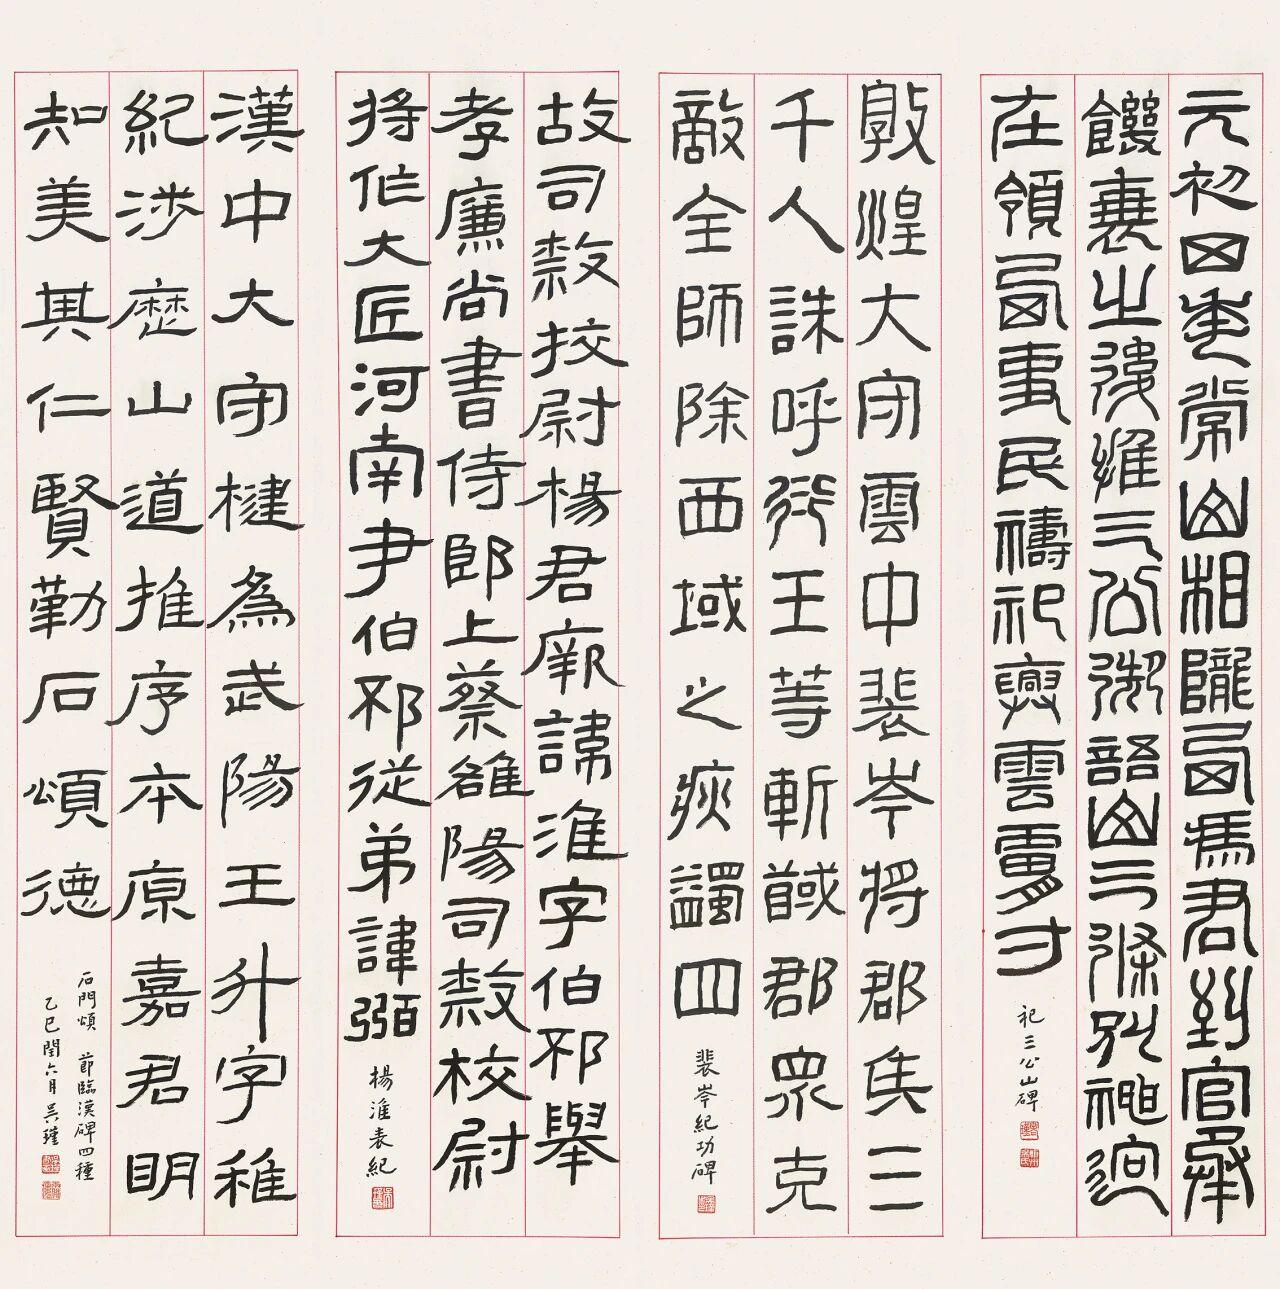 元初四年常山相隴西馮君到官承
饑衰之後惟三公御語山三條別神迥
在領西吏民禱祀興雲膚寸
祀三公山碑
敦煌大守雲中裴岑將郡兵三
千人誅呼衍王等斬馘郡眾克
敵全師除西域之疢蠲四
裴岑紀功碑
故司隸校尉楊君厥諱淮字伯邳舉
孝廉尚書侍郎上蔡雒陽司隸校尉
將作大匠河南尹伯邳從弟諱弼
楊淮表紀
漢中大守楗為武陽王升字稚
紀涉歷山道推序本原嘉君明
知美其仁賢勒石頌德
石門頌 節臨漢碑四種
乙巳閏六月吳瑾